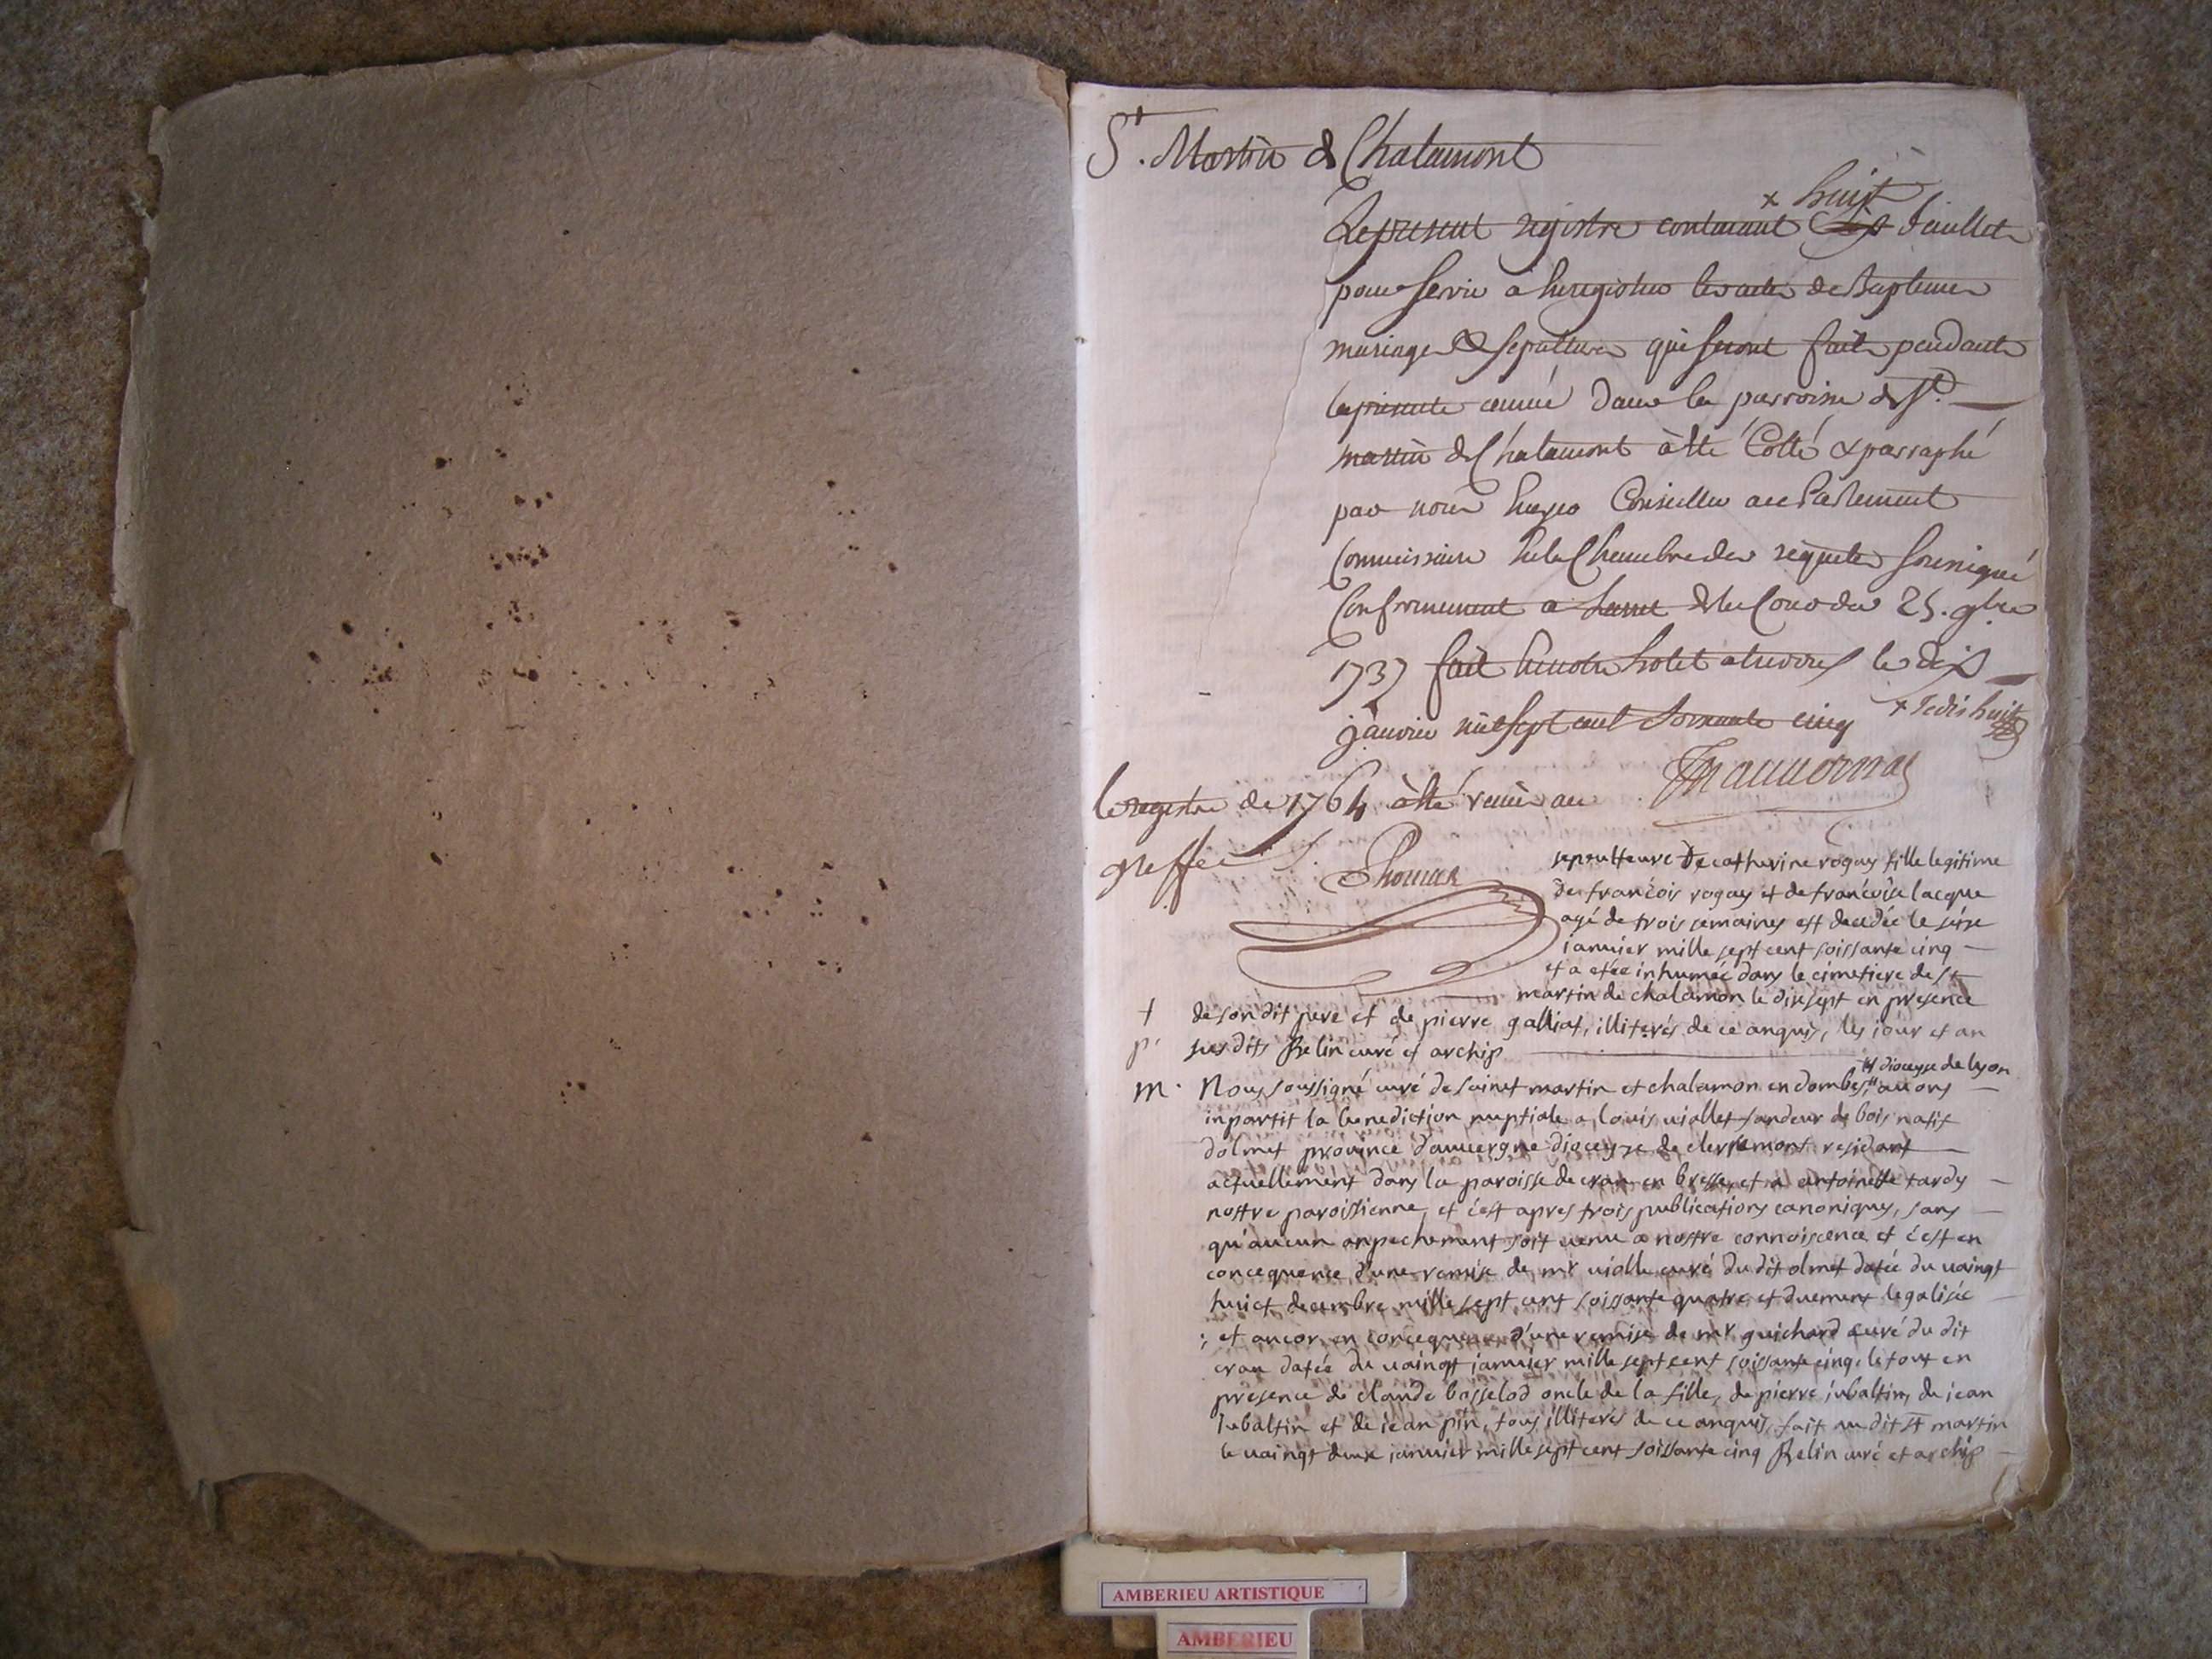 St. Martin de Chalamont
x huit
Le present registre contenant feuillets
pour servir a enregistrer les actes de Baptemes
mariages & sepultures qui seront faits pendant
la presente année dans la parroisse de St.
martin de Chalamont à été Cotté & parraphé
par nous Conseiller au Parlement
Commissaire de la Chambre des requetes soussigné
Conformement a larret de la Cour du 25. 9bre
1737 fait en notre hotel a trevoux le dix
janvier mil sept cent soixante cinq
x dix huit
le registre de 1764 à été remis au
greffe
Thomas
sepulteure de catherine rogay fille legitime
de francois rogay et de francoise lacque
agé de trois semaines est decedée le seise
ianuier mille sept cent soissante cinq
et a etée inhumée dans le cimetiere de st
martin de chalamon le disesept en presence
+ de son dit pere et de pierre galliat, illiterés de ce anquis, les iour et an
p. susdits Relin curé et archip
st dioceyse de lyon
m. Nous soussigné curé de saint martin et chalamon en dombes auons
inpartit la benediction nuptiale a louis uiallet sandeur de bois natif
dolmet prouince d'auuergne dioceyse de clermont residant
actuellement dans la paroisse de cran en bresse, et a antoinette tardy
nostre paroissienne, et c'est apres trois publications canoniques, sans
qu'aucun anpechement soit uenu a nostre connoiscence et c'est en
concequence d'une remise de mr uialle curé du dit olmet datée du uaingt
huict decembre mille sept cent soissante quatre et duement legalisée
; et ancor en concequence d'une remise de mr guichard curé du dit
cran datée du uaingt ianuier mille sept cent soissante cinq. le tout en
presence de claude basselod oncle de la fille, de pierre iubaltin, de iean
iubaltin et de iean pin, tous illiterés de ce anquis, fait au dit st martin
le uaingt deux ianuier mille sept cent soissante cinq Relin curé et archip
AMBERIEU ARTISTIQUE
AMBERIEU